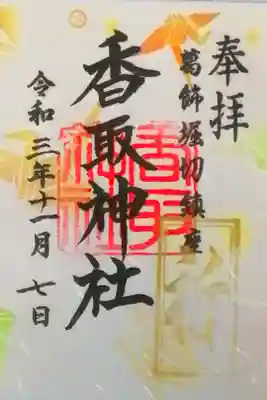 奉拝
葛飾堀切鎮座
香取神社
令和三年十一月七日